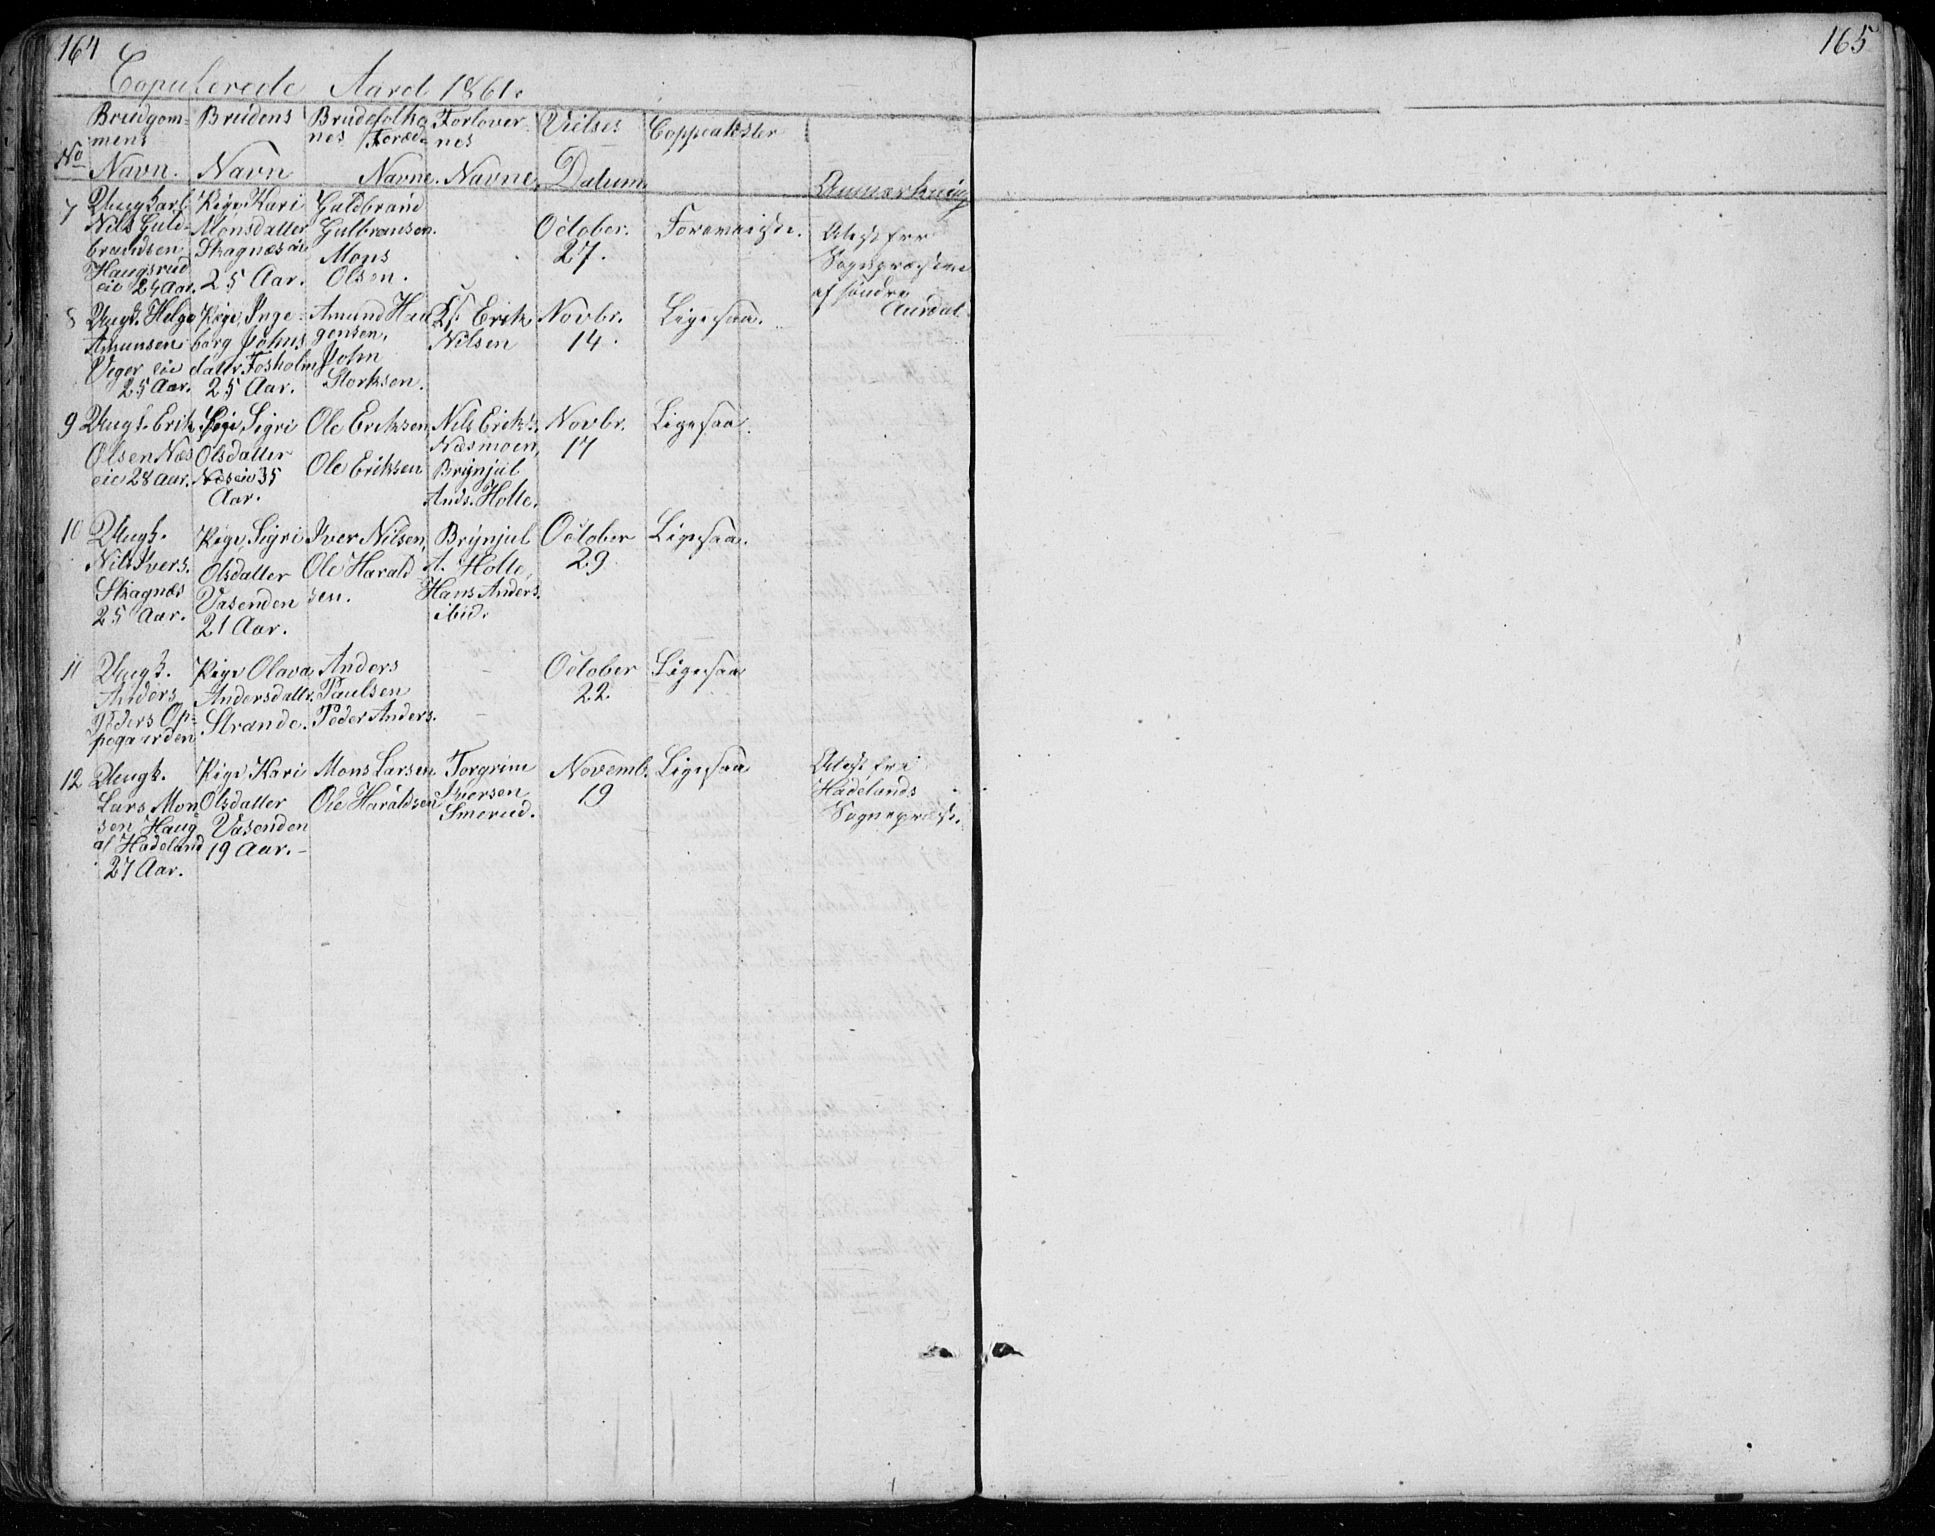 164
165
Copulerede Aaret 1861.
No
Brudgom-
mens
Navn.
Brudens
Navn
Brudefolke
nes Foræl-
Navne.
Forlover-
nes
Navne
Vielses
Datum
Coppeatester
Anmærkning
7
Ungkarl
Nils Guld-
brandsen
Haugsrud
eie 24 Aar.
Pige Kari
Monsdatter
Skagnæs eie
25 Aar.
Guldbrand
Gulbransen.
Mons
Olsen.
October.
27.
Forevviiste.
Atest fra
Sognepræsten
af søndre
Aurdal.
8
Ungk. Helge
Amunsen
Veger eie
25 Aar.
Pige Inge-
borg Johns
dattr. Fosholm
25 Aar.
Amund Hel
gensen,
John
Storksen.
Erik
Nilsen
Novbr.
14.
Ligesaa.
9
Ungk. Erik
Olsen Næs
eie 28 Aar.
Pige Sigri
Olsdatter
Næseie 35
Aar.
Ole Eriksen
Ole Eriksen
Nils Eriks.
Næsmoen,
Brynjul
Ands. Holte.
Novbr.
17
Ligesaa.
10
Ungk.
Nils Ivers.
Skagnæs
25 Aar.
Pige Sigri
Olsdatter
Vasenden
21 Aar.
Iver Nilsen,
Ole Harald
sen.
Brynjul
A. Holte,
Hans Anders.
ibid.
October
29.
Ligesaa.
11
Ungk.
Anders
Peders Op-
pegaarden
Pige Olava
Andersdattr.
Strande.
Anders
Paulsen
Peder Anders.
October
22.
Ligesaa
12
Ungk.
Lars Mon
sen Haug
af Hadeland
27 Aar.
Pige Kari
Olsdatter
Vasenden
19 Aar.-
Mons Larsen
Ole Haraldsen
Torgrim
Iversen
Smerud.
Novemb.
19
Ligesaa
Atest fra
Hadelands
Sognepræst.